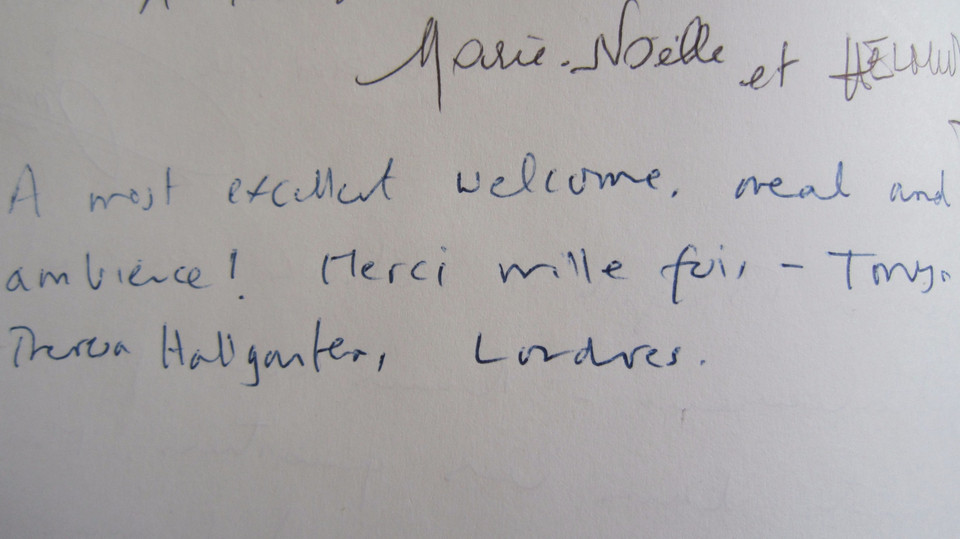 Marie-Noëlle et
A most excellent welcome, meal and
ambience! Merci mille fois - Tony,
Theresa Hallgarten, Londres.